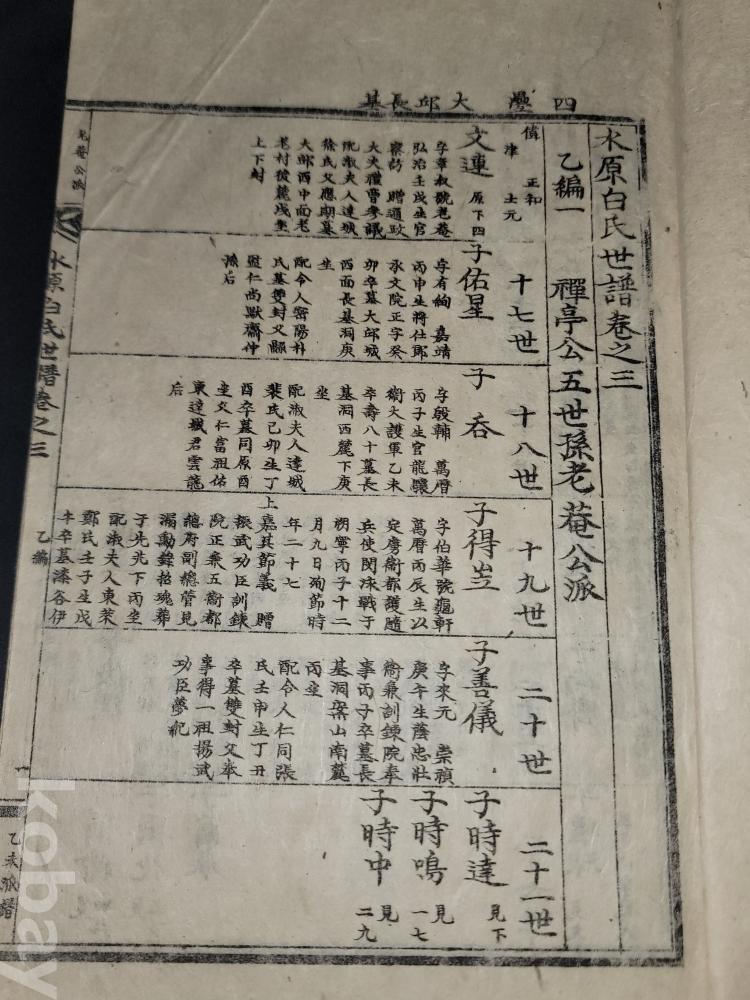 四變 大邱長基
水原白氏世譜卷之三
乙編一 禪亭公五世孫老菴公派
正和
津 士元
文連 原下四
字章叔號老菴
弘治壬戌生官
察訪 贈通政
大夫禮曹參議
配淑夫人達城
徐氏父應期墓
大邱西中面老
老村後麓戌坐
上下封
十七世
子佑星
字有絢 嘉靖
丙申生將仕郞
承文院正字癸
卯卒墓大邱城
西面長基洞庚
坐
配令人密陽朴
氏墓雙封父嗣
慰仁尚默齋仲
孫后
十八世
子呑
字殷輔 萬曆
丙子生官龍驤
衛大護軍乙未
卒壽八十墓長
基洞西麓下庚
坐
配淑夫人達城
裴氏己卯生丁
酉卒墓同原酉
坐父仁富祖佑
東達城君雲龍
后
十九世
子得岦
字伯華號龜軒
萬曆丙辰生以
定虜衛都護隨
兵使閔泳戰于
朔寧丙子十二
月九日殉節時
年二十七
上嘉其節義 贈
振武功臣訓鍊
院正兼五衛都
摠府副摠管見
漏勳錄招魂葬
于先兆下丙坐
配淑夫人東萊
鄭氏壬子生戊
午卒墓漆谷伊
二十世
子善儀
字來元 崇禎
庚午生蔭忠壯
衛兼訓鍊院奉
事丙子卒墓長
基洞案山南麓
丙坐
配令人仁同張
氏壬申生丁丑
卒墓雙封父奉
事得一祖揚武
功臣夢紀
二十一世
子時達 見下
子時鳴 見一七
子時中 見二九
老菴公派
水原白氏世譜卷之三
乙編
乙未派譜
kobay